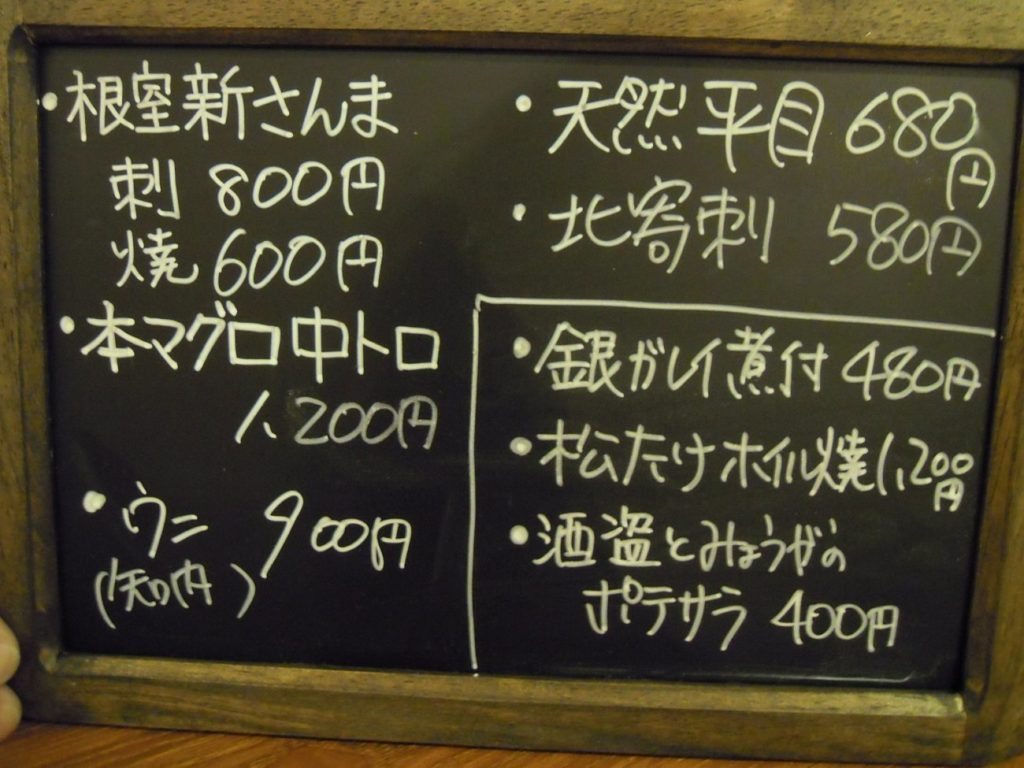 ・根室新さんま
刺 800円
焼 600円
・本マグロ中トロ
1,200円
・ウニ 900円
(知内)
・天然平目 680円
・北寄刺 580円
・銀ガレイ煮付 480円
・松たけホイル焼 1,200円
・酒盗とみょうがの
ポテサラ 400円